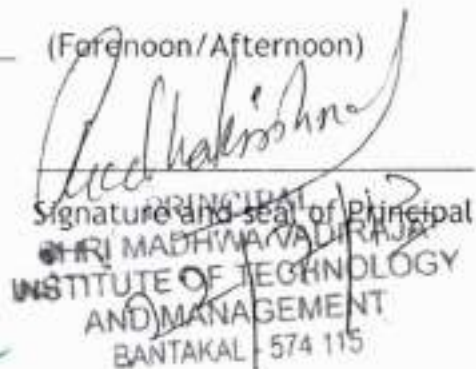 (Forenoon/Afternoon)
PRINCIPAL
Signature and seal of Principal
SHRI MADHWA VADIRAJA
INSTITUTE OF TECHNOLOGY
AND MANAGEMENT
BANTAKAL - 574 115